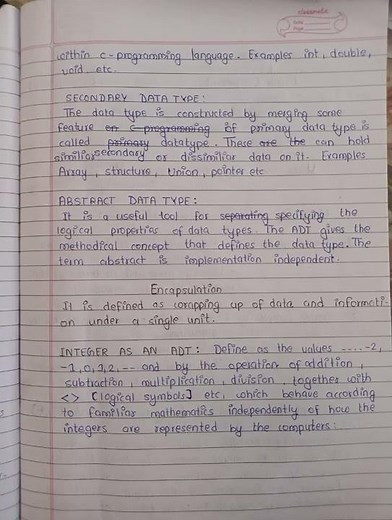 classmate
Date
Page
within c-programming language. Examples int, double,
void etc.
SECONDARY DATA TYPE:
The data type is constructed by merging some
feature or c-programming of primary data type is
called primary datatype. These are the can hold
similar secondary or dissimiliar data on it. Examples
Array, structure, Union, pointer etc
ABSTRACT DATA TYPE:
It is a useful tool for separating specifying the
logical properties of data types. The ADT gives the
methodical concept that defines the data type. The
term abstract is implementation independent.
Encapsulation
It is defined as wrapping up of data and informati-
on under a single unit.
INTEGER AS AN ADT: Define as the values .....-2,
-1,0,1,2,-- and by the operation of addition,
subtraction, multiplication, division, together with
<> [logical symbols] etc, which behave according
to familiar mathematics independently of how the
integers are represented by the computers: